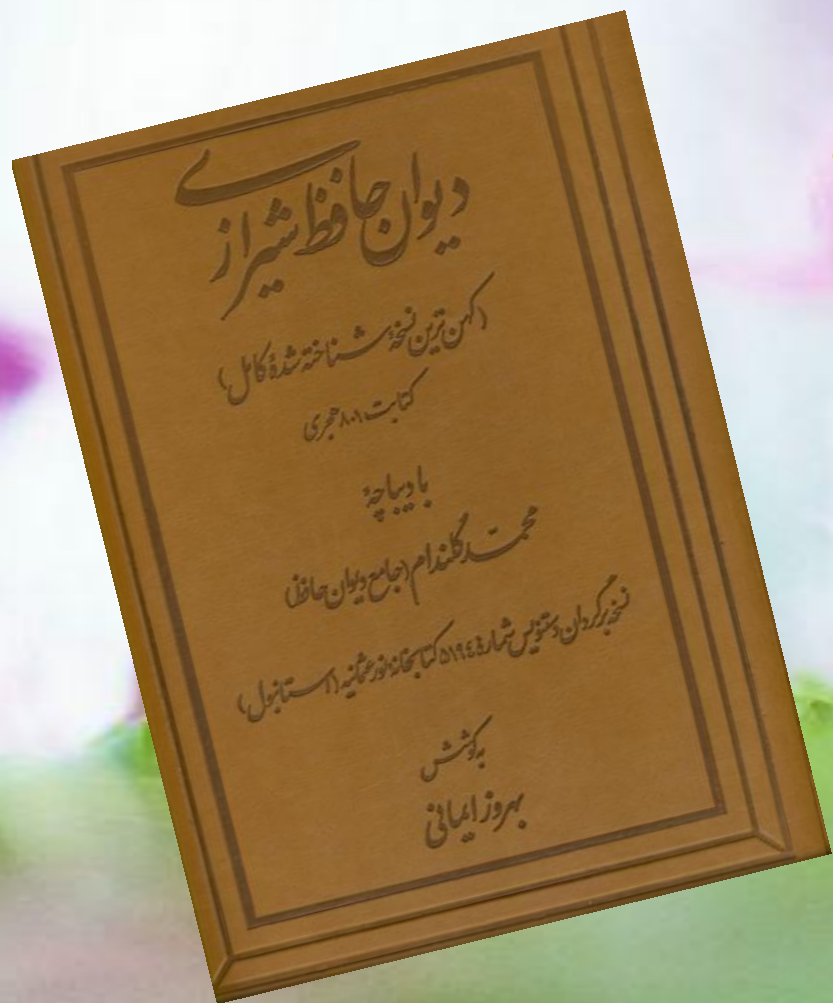 دیوان حافظ شیرازی
(کهن‌ترین نسخهٔ شناخته‌شدهٔ کامل)
کتابت ۸۰۱ هجری
با دیباچهٔ
محمّد گلندام (جامع دیوان حافظ)
نسخه‌برگردان دستنویس شمارهٔ ۵۱۹٤ کتابخانهٔ نورعثمانیه (استانبول)
به کوشش
بهروز ایمانی